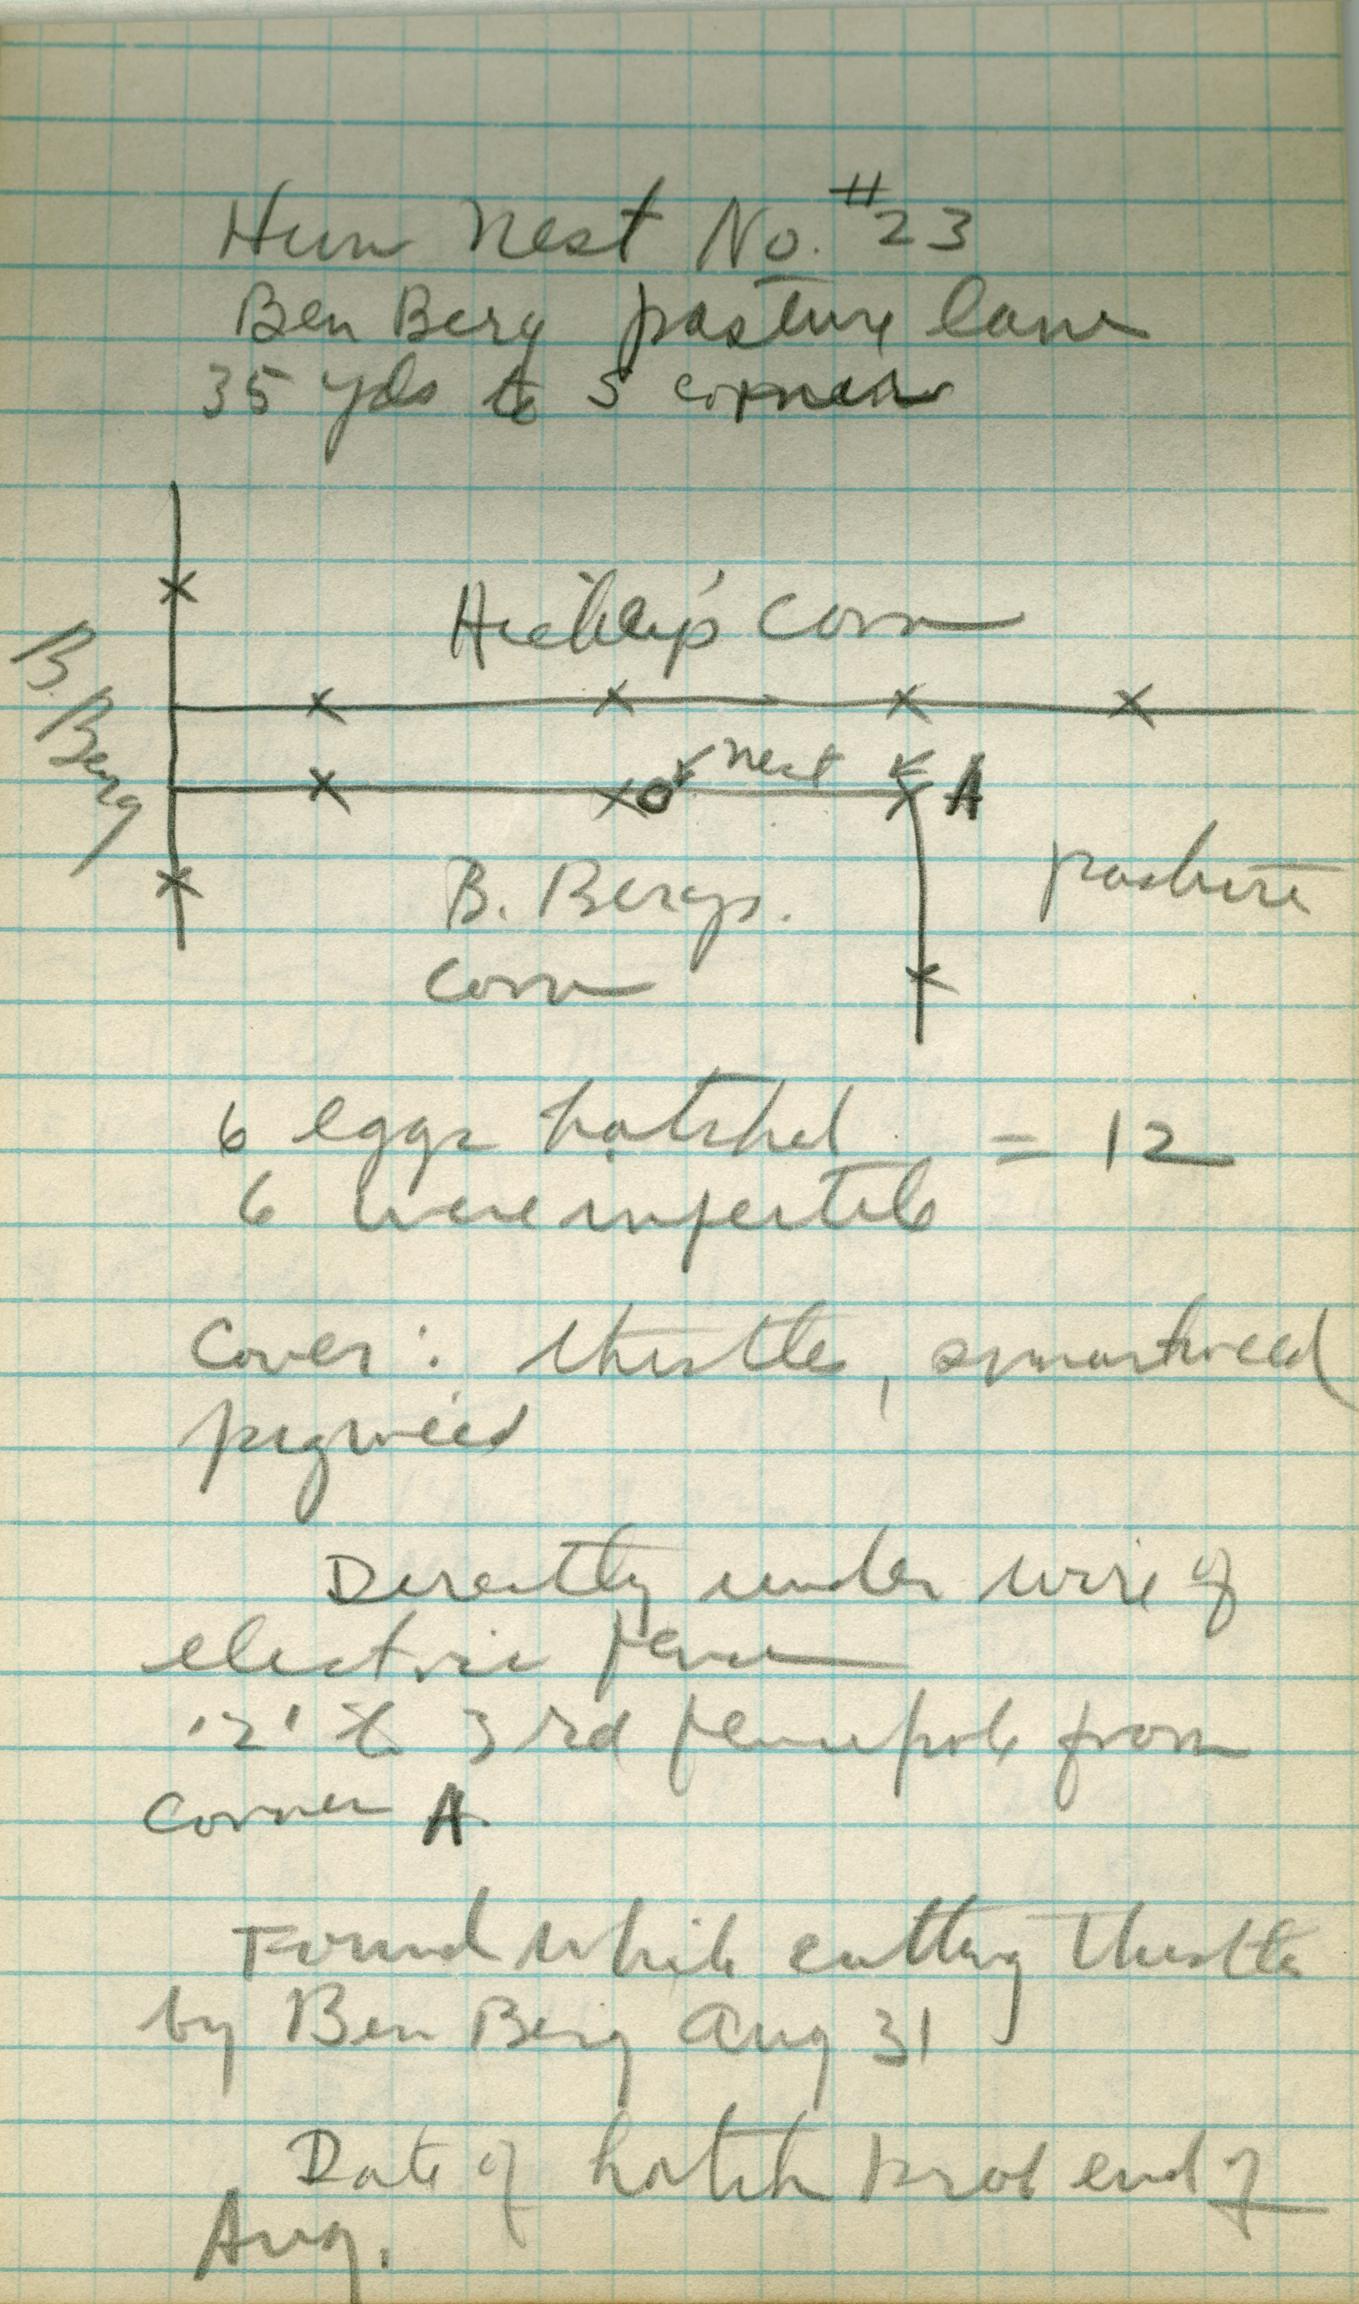 Hun Nest No. #23
Ben Berg pasture lane
35 yds to S corner
corn
B. Berg
nest
A
B. Bergs.
pasture
corn
6 eggs hatched = 12
6 were infertile
Cover: thistle, smartweed
pigweed
Directly under wire of
electric fence
2' to 3rd fencepole from
corner A
Found while cutting thistle
by Ben Berg Aug 31
Date of hatch prob end of
Aug.